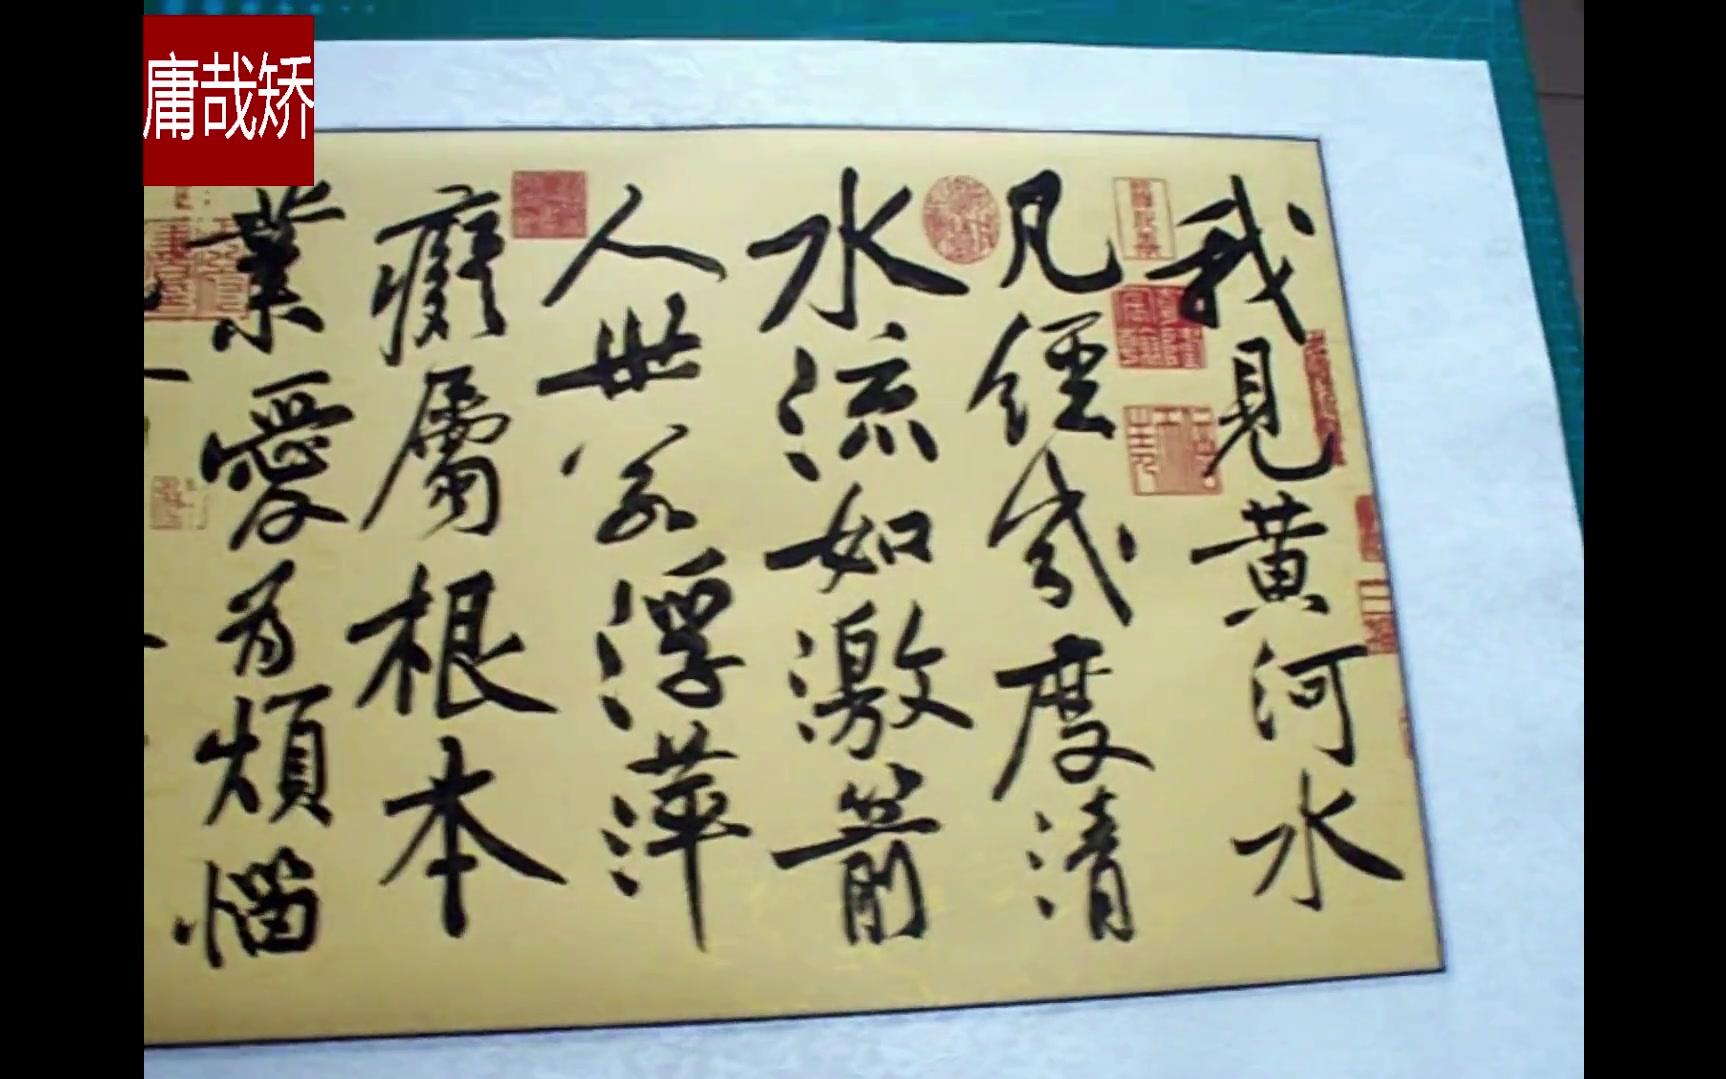 庸哉矫
我見黄河水
凡經幾度清
水流如激箭
人世若浮萍
癡屬根本
業愛為煩惱